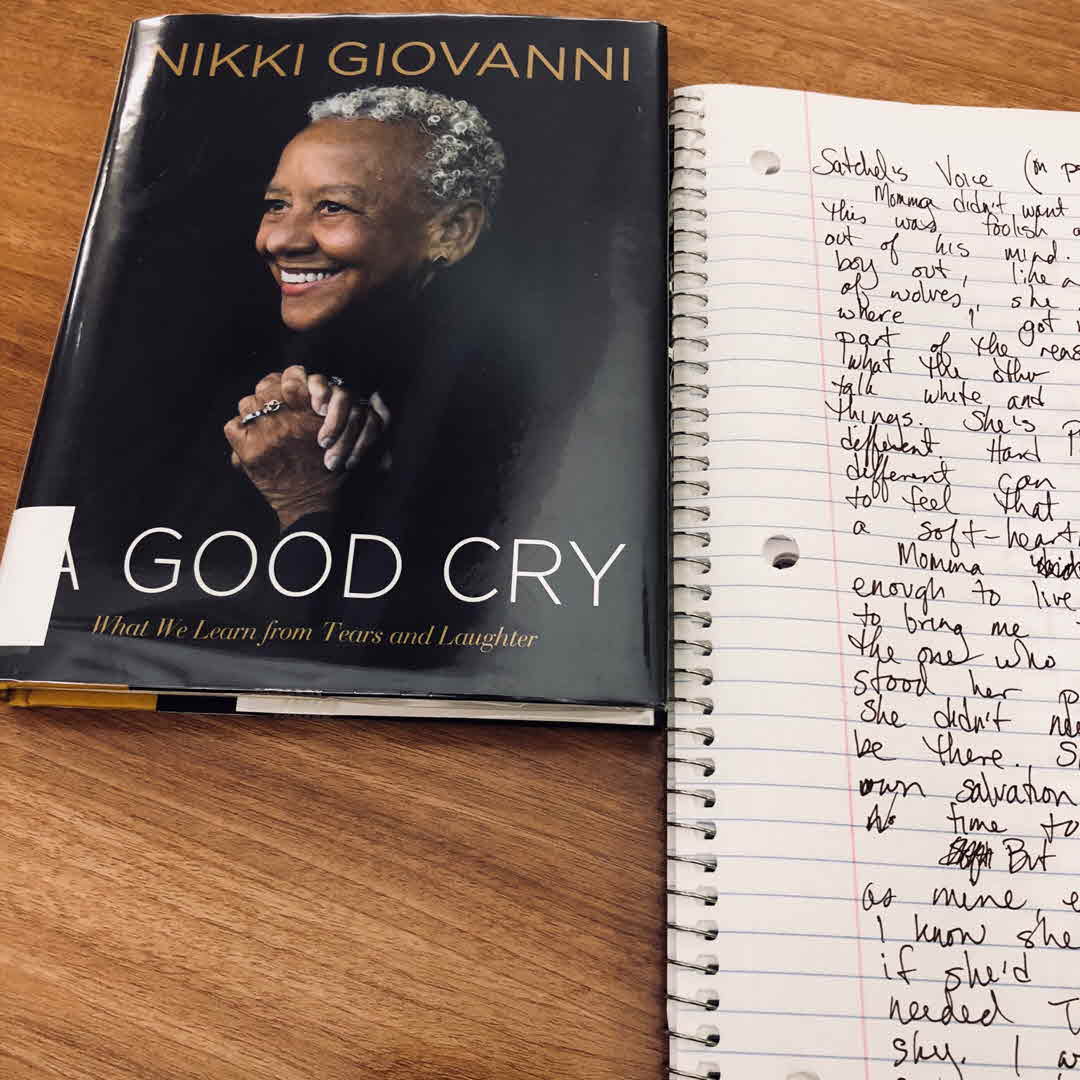 NIKKI GIOVANNI
A GOOD CRY
What We Learn from Tears and Laughter
Satchel's Voice (in p
Momma didn't want
this was foolish
out of his mind.
boy out, like a
of wolves, she
where I got
part of the reas
what the other
talk white and
things. She's
different. Hard
different can
to feel that
a soft-heart
Momma
enough to live
to bring me
the one who
stood her p
she didn't ne
be there. S
own salvation
No time to
But
as mine, e
I know she
if she'd
needed T
sky. I